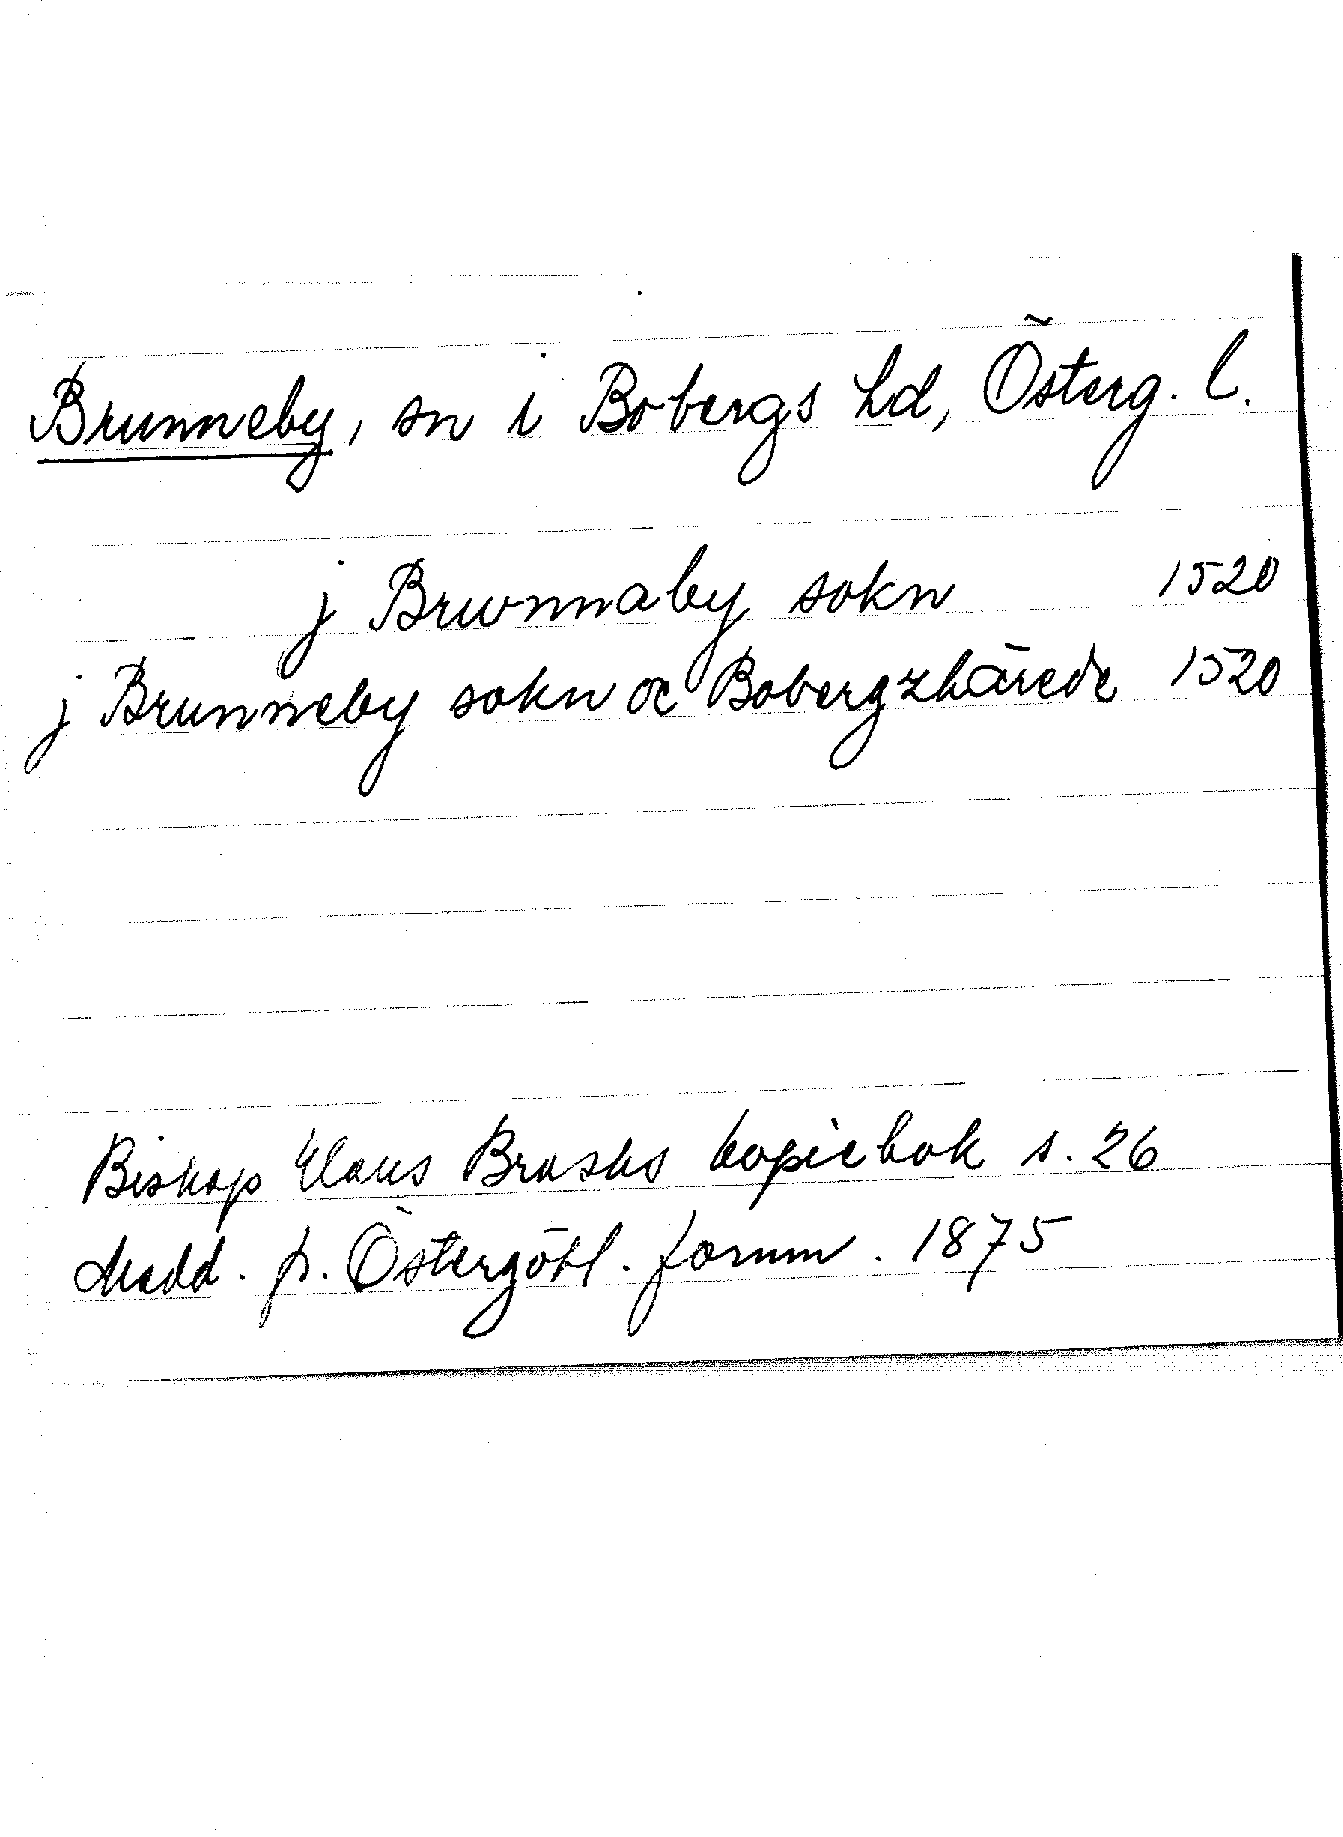 Brunneby, sn i Bobergs hd, Österg. l.
j Brwnnaby sokn 1520
j Brunneby sokn oc Bobergzhärede 1520
Biskop Hans Brasks kopiebok s. 26
Medd. fr. Östergötl. fornm. 1875